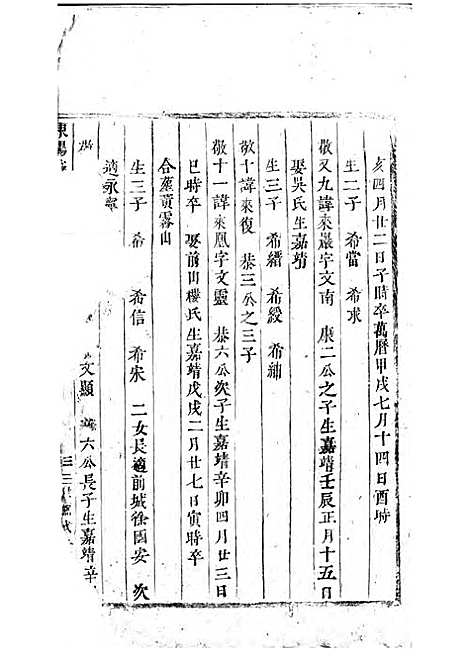 亥四月廿二日子時卒萬曆甲戌七月十四日酉時
生二子 希當 希求
敬又九諱來巖字文南 康二公之子生嘉靖壬辰正月十五日
娶吳氏生嘉靖
生三子 希縉 希綬 希紳
敬十諱來復 恭三公之三子
敬十一諱來鳳字文靈 恭六公次子生嘉靖辛卯四月廿三日
巳時卒 娶前山樓氏生嘉靖戊戌二月廿七日寅時卒
合塟黃露山
生三子 希 希信 希宋 二女長適前城徐因安 次
適永寧
文顯 六公長子生嘉靖辛
東陽